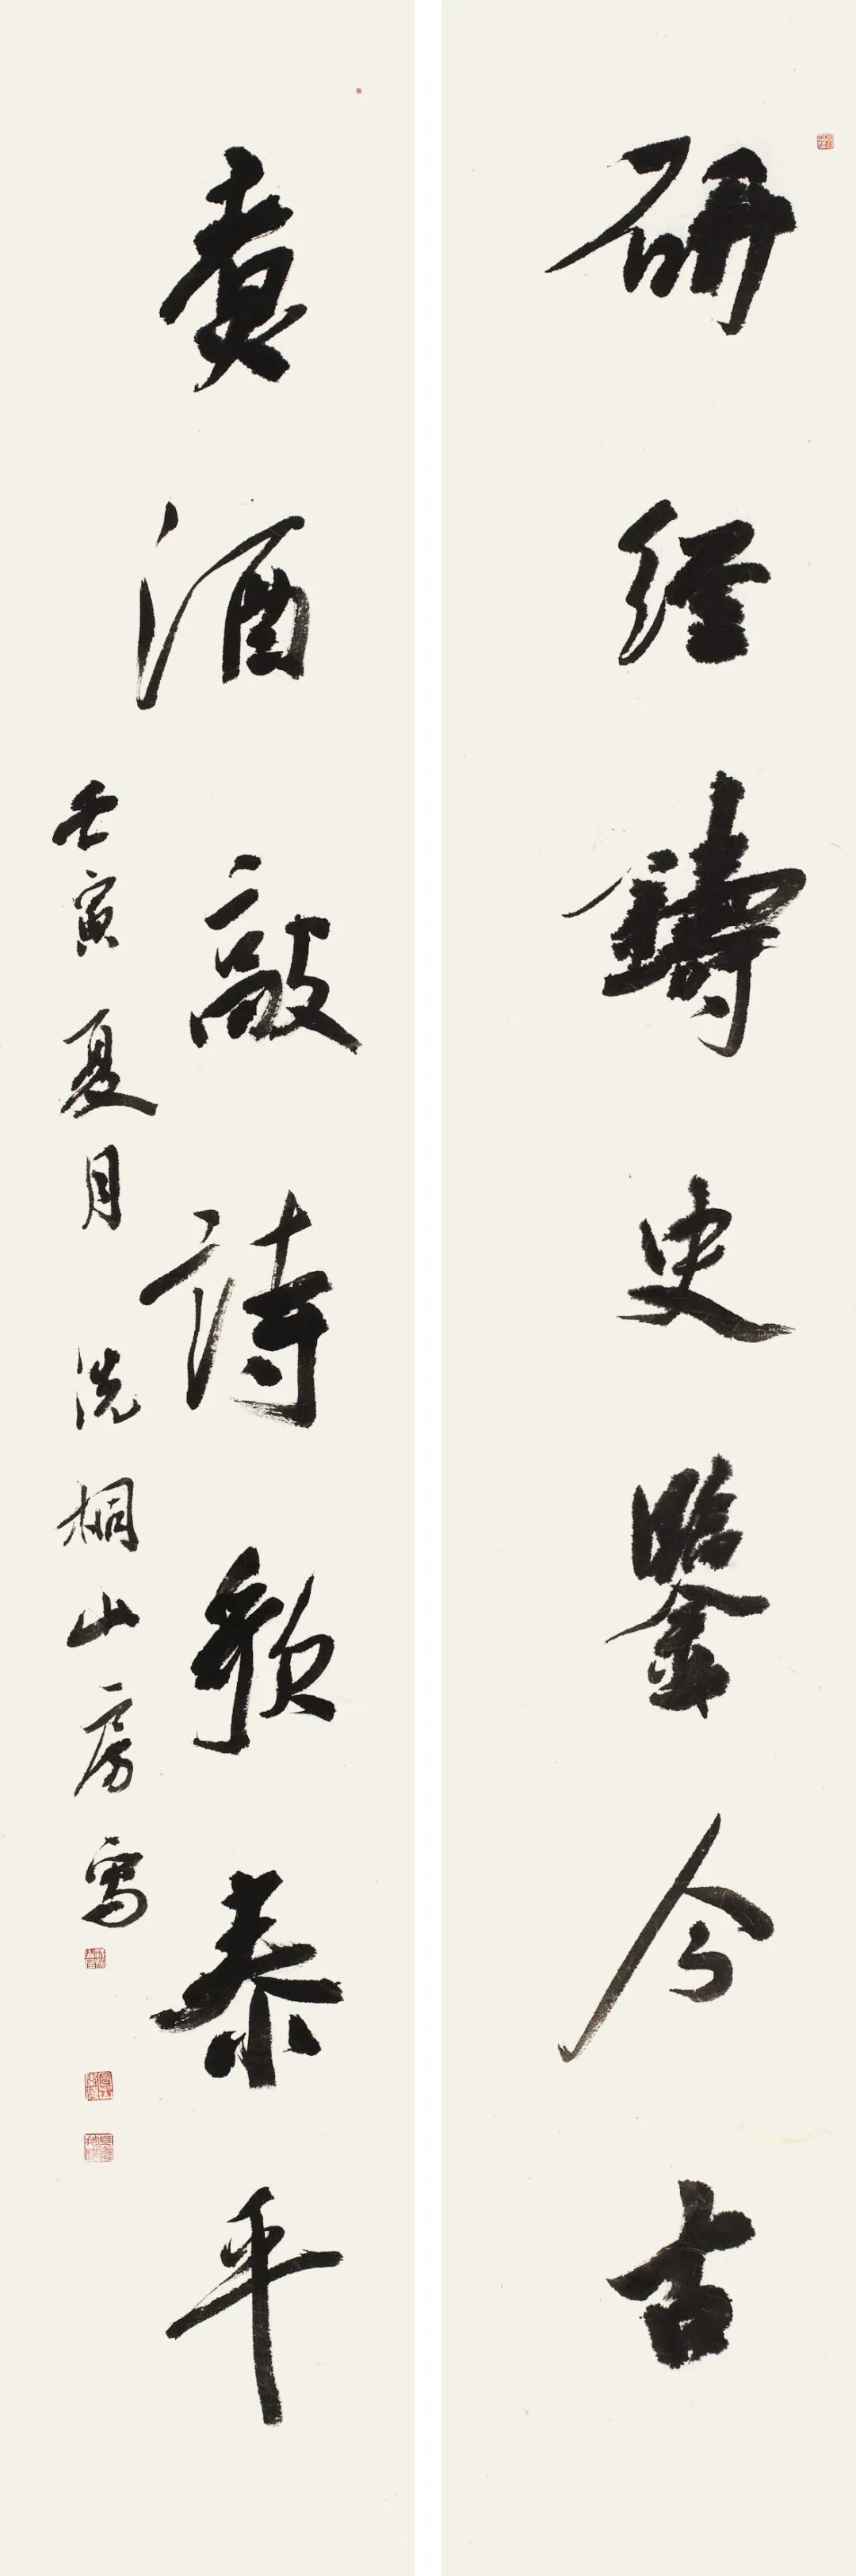 研經鑄史鑒今古
煮酒敲詩歌泰平
壬寅夏月洗桐山房寫